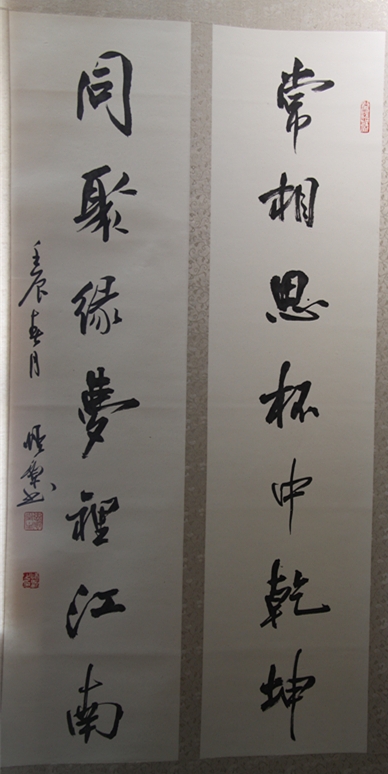 常相思杯中乾坤
同聚緣夢裡江南
壬辰春月